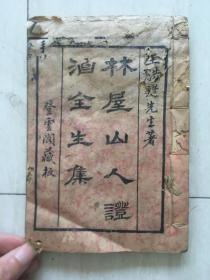 王洪緒先生著
林屋山人證
治全生集
登雲閣藏板